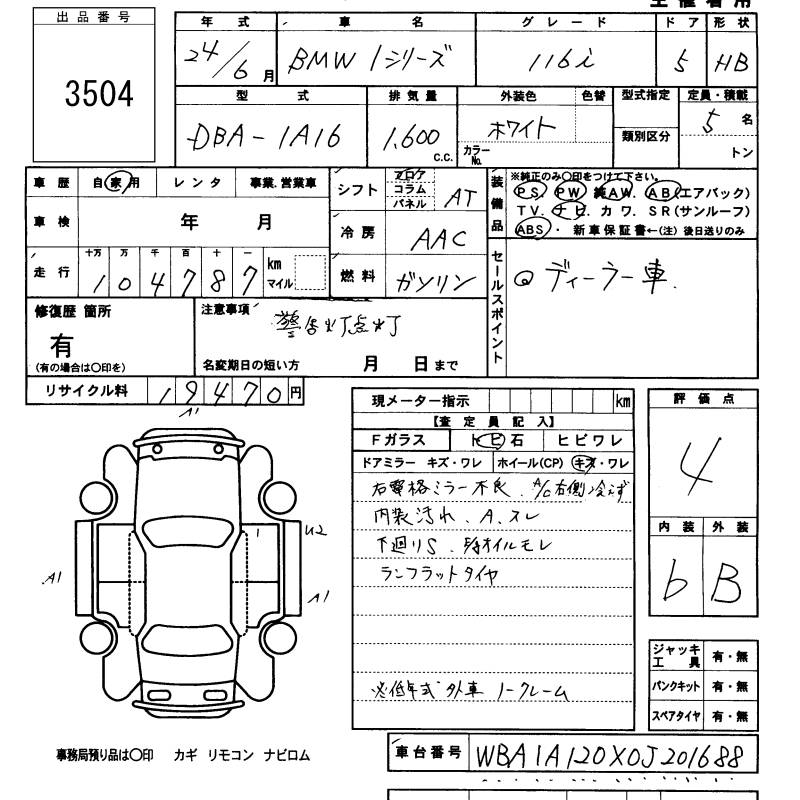 出品番号
3504
年式 車名 グレード ドア 形状
24/6月 BMW 1シリーズ 116i 5 HB
型式 排気量 外装色 色替 型式指定 定員・積載
DBA-1A16 1,600 c.c. ホワイト カラーNo. 類別区分 5名
トン
車歴 自家用 レンタ 事業.営業車
車検 年 月
走行 十万 万 千 百 十 一
104787 km マイル
シフト フロア コラム パネル AT
冷房 AAC
燃料 ガソリン
装備品
※純正のみ○印をつけて下さい。
PS. PW. 純AW. AB(エアバック)
TV. ナビ. カワ. SR(サンルーフ)
ABS・ 新車保証書←(注) 後日送りのみ
セールスポイント
ディーラー車.
修復歴 箇所
有
(有の場合は○印を)
注意事項
警告灯点灯
名変期日の短い方 月 日まで
リサイクル料 19470円
A1
U2
A1
A1
現メーター指示 km
【査定員記入】
Fガラス トビ石 ヒビワレ
ドアミラー キズ・ワレ ホイール(CP) キズ・ワレ
右電格ミラー不良. A/C右側冷えず
内装汚れ. A. スレ
下廻りS. オイルモレ
ランフラットタイヤ
※低年式外車 ノークレーム
評価点
4
内装 外装
b B
ジャッキ工具 有・無
パンクキット 有・無
スペアタイヤ 有・無
事務局預り品は○印 カギ リモコン ナビロム
車台番号 WBA1A120X0J201688